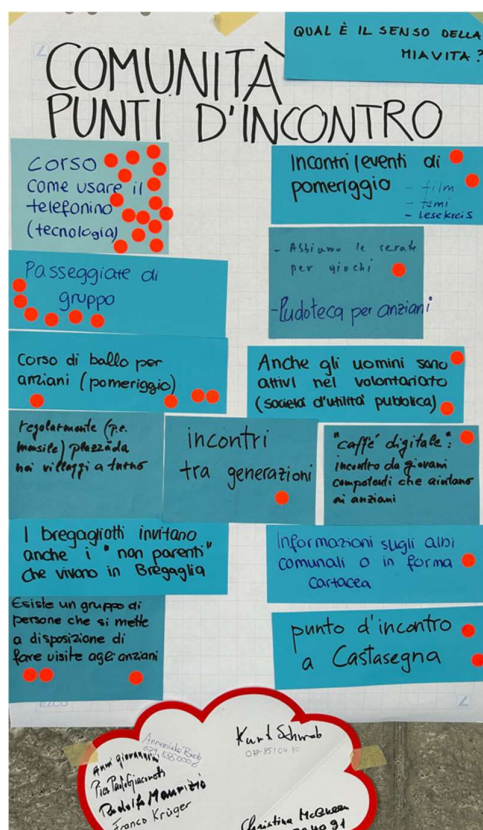 QUAL È IL SENSO DELLA
MIA VITA?
COMUNITÀ
PUNTI D'INCONTRO
corso
come usare il
telefonino
(tecnologia)
Incontri/eventi di
pomeriggio
- film
- temi
- Lesekreis
Passeggiate di
gruppo
- Abbiamo le serate
per giochi
- Ludoteca per anziani
Corso di ballo per
anziani (pomeriggio)
Anche gli uomini sono
attivi nel volontariato
(società d'utilità pubblica)
regolarmente (p.e.
mensile)
nei villaggi a turno
incontri
tra generazioni
"caffè digitale":
incontro da giovani
competenti che aiutano
ai anziani
I bregagliotti invitano
anche i "non parenti"
che vivono in Bregaglia
Informazioni sugli albi
comunali o in forma
cartacea
Esiste un gruppo di
persone che si mette
a disposizione di
fare visite agli anziani
punto d'incontro
a Castasegna
Kurt Schwob
Anni Giovannini
Pier Paolo Giacometti
Rodolfo Maurizio
Franco Krüger
Christina McQueen